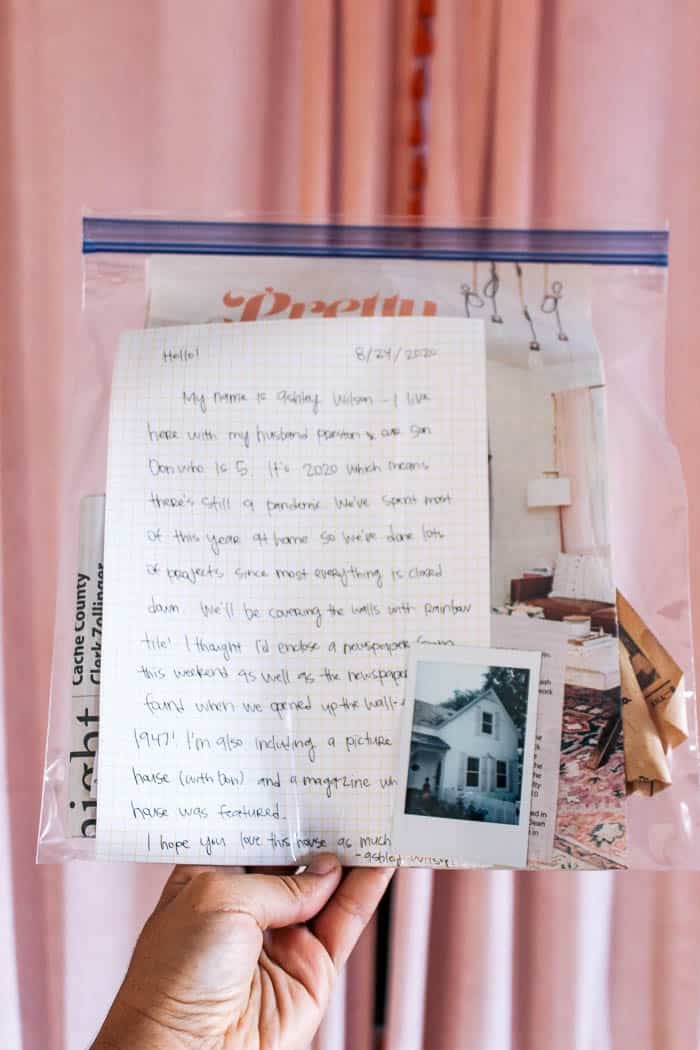 Pretty
Hello! 8/24/2020
My name is Ashley Wilson - I live
here with my husband Preston & our son
Don who is 5. It's 2020 which means
there's still a pandemic. We've spent most
of this year at home so we've done lots
of projects since most everything is closed
down. We'll be covering the walls with rainbow
tile! I thought I'd enclose a newspaper from
this weekend as well as the newspaper
found when we opened up the wall -
1947! I'm also including a picture
house (with Don) and a magazine wh
house was featured.
I hope you love this house as much
- Ashley Wilson
Cache County
Clerk Zollinger